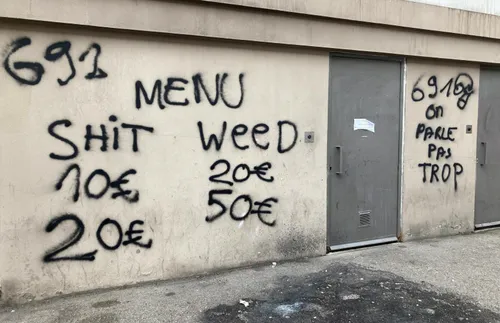 691
MENU
SHIT WEED
10€ 20€
20€ 50€
691
ON
PARLE
PAS
TROP